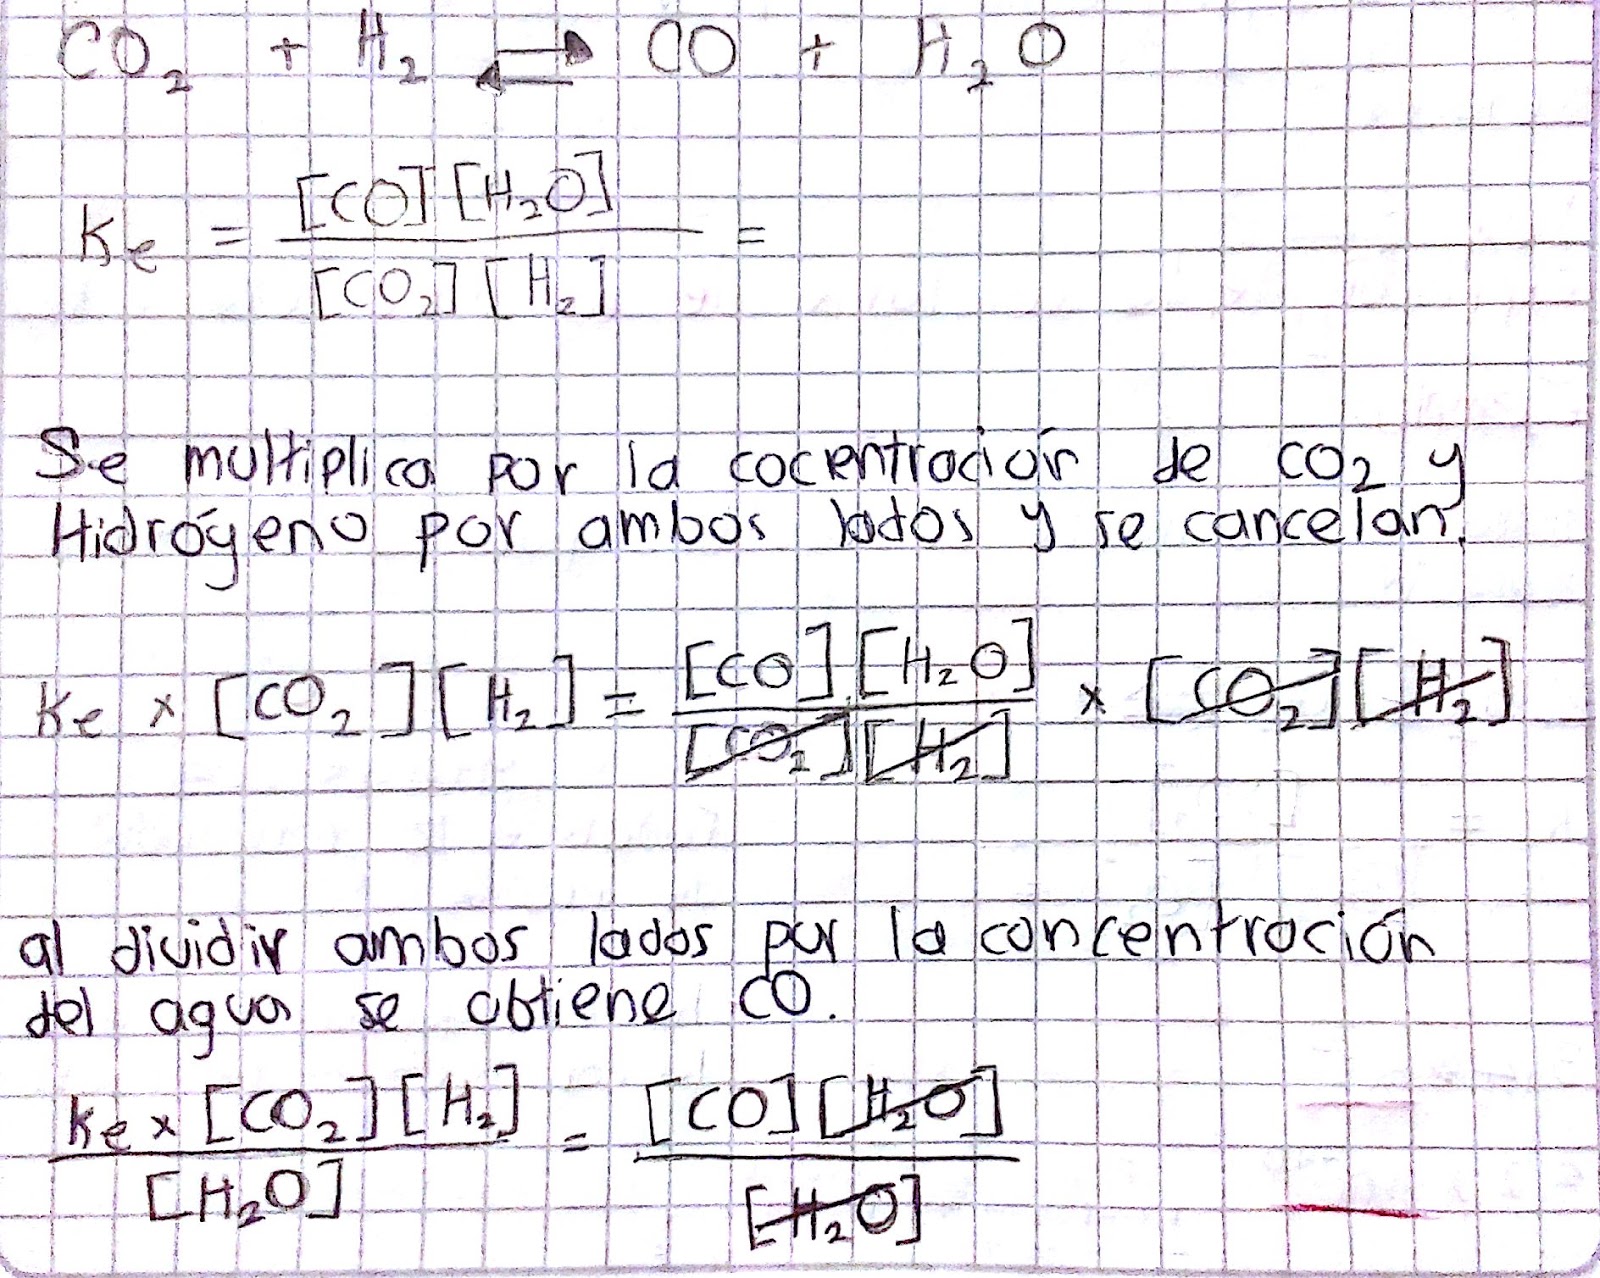 CO₂ + H₂ ⇄ CO + H₂O
Ke = [CO] [H₂O] / [CO₂] [H₂] =
Se multiplica por la cocentración de CO₂ y
Hidrógeno por ambos lados y se cancelan.
Ke x [CO₂] [H₂] = [CO] [H₂O] / [CO₂] [H₂] x [CO₂] [H₂]
al dividir ambos lados por la concentración
del agua se obtiene CO.
Ke x [CO₂] [H₂] / [H₂O] = [CO] [H₂O] / [H₂O]